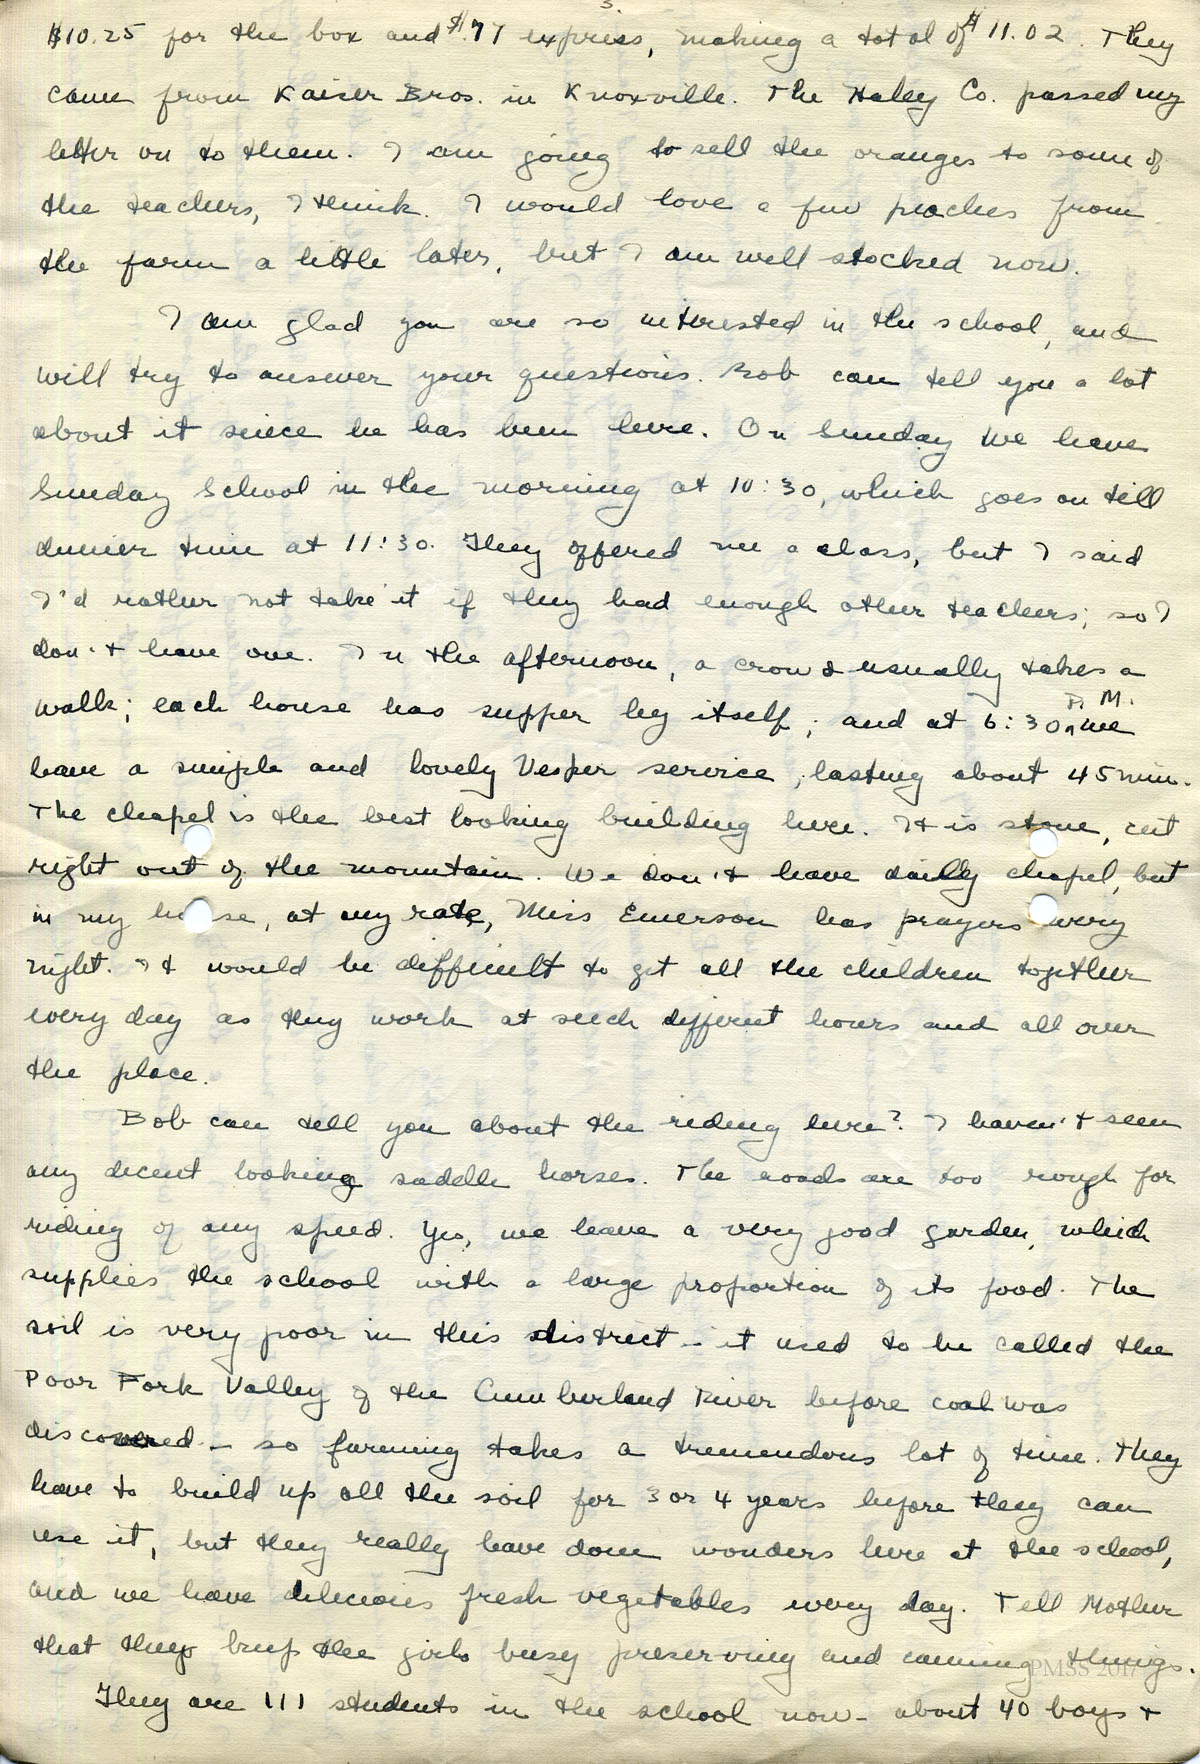 3.
$10.25 for the box and $.77 express, making a total of $11.02. They
came from Kaiser Bros. in Knoxville. The Haley Co. passed my
letter on to them. I am going to sell the oranges to some of
the teachers, I think. I would love a few peaches from
the farm a little later, but I am well stocked now.
I am glad you are so interested in the school, and
will try to answer your questions. Bob can tell you a lot
about it since he has been here. On Sunday we have
Sunday School in the morning at 10:30, which goes on till
dinner time at 11:30. They offered me a class, but I said
I'd rather not take it if they had enough other teachers; so I
don't have one. In the afternoon, a crowd usually takes a
walk; each house has supper by itself; and at 6:30 P.M. we
have a simple and lovely Vesper service, lasting about 45 min.
The chapel is the best looking building here. It is stone, cut
right out of the mountain. We don't have daily chapel, but
in my house, at any rate, Miss Emerson has prayers every
night. It would be difficult to get all the children together
every day as they work at such different hours and all over
the place.
Bob can tell you about the riding here? I haven't seen
any decent looking saddle horses. The roads are too rough for
riding of any speed. Yes, we have a very good garden, which
supplies the school with a large proportion of its food. The
soil is very poor in this district - it used to be called the
Poor Fork Valley of the Cumberland River before coal was
discovered - so farming takes a tremendous lot of time. They
have to build up all the soil for 3 or 4 years before they can
use it, but they really have done wonders here at the school,
and we have delicious fresh vegetables every day. Tell Mother
that they keep the girls busy preserving and canning things.
PMSS 2017
They are 111 students in the school now - about 40 boys +